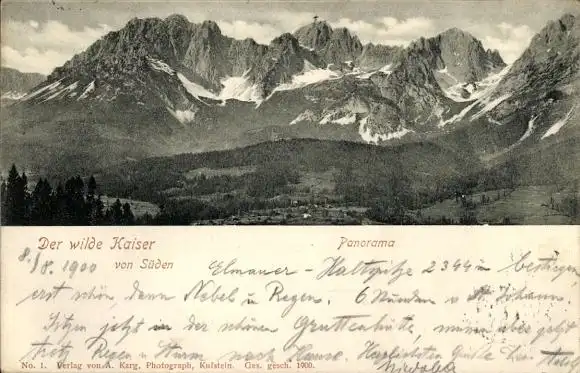 Der wilde Kaiser
von Süden
Panorama
8./8. 1900
Elmauer - Haltspitze 2344 m bestiegen
erst schön, dann Nebel u Regen. 6 Stunden v. St. Johann.
Sitzen jetzt in der schönen Gruttenhütte, müssen aber jetzt
trotz Regen u Sturm nach Hause. Herzlichsten Gruß
No. 1. Verlag von A. Karg, Photograph, Kufstein. Ges. gesch. 1900.